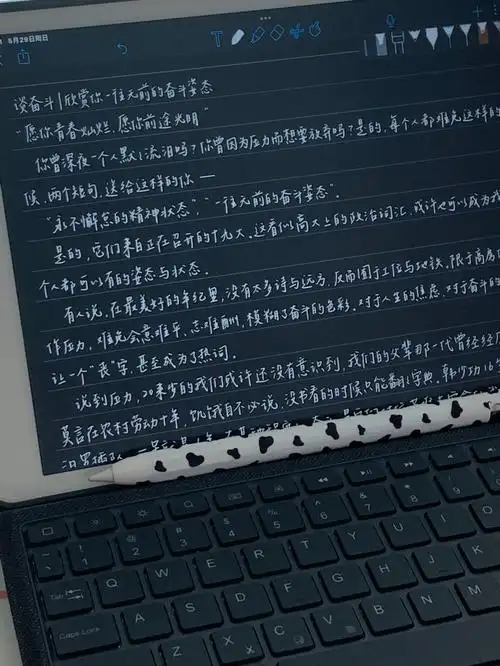 5月29日周日
谈奋斗|欣赏你一往无前的奋斗姿态
"愿你青春灿烂,愿你前途光明"
你曾深夜一个人默默流泪吗?你曾因为压力而想要放弃吗?是的,每个人都难免这样的
候,两个短句,送给这样的你——
"永不懈怠的精神状态","一往无前的奋斗姿态"。
是的,它们来自正在召开的十九大。这看似高大上的政治词汇,或许也可以成为我
个人都可以有的姿态与状态。
有人说,在最美好的年纪里,没有太多诗与远方,反而囿于工位与地铁,限于高房
作压力,难免会意难平、志难酬,模糊了奋斗的色彩。对于人生的焦虑,对于奋斗的
让一个"丧"字,甚至成为了热词。
说到压力,20来岁的我们或许还没有意识到,我们的父辈那一代曾经经历
莫言在农村劳动十年,饥饿自不必说,没书看的时候只能翻字典。韩少功16
Tab Q W E R T Y U I
Caps Lock A S D F G H J K
Z X C V B N M